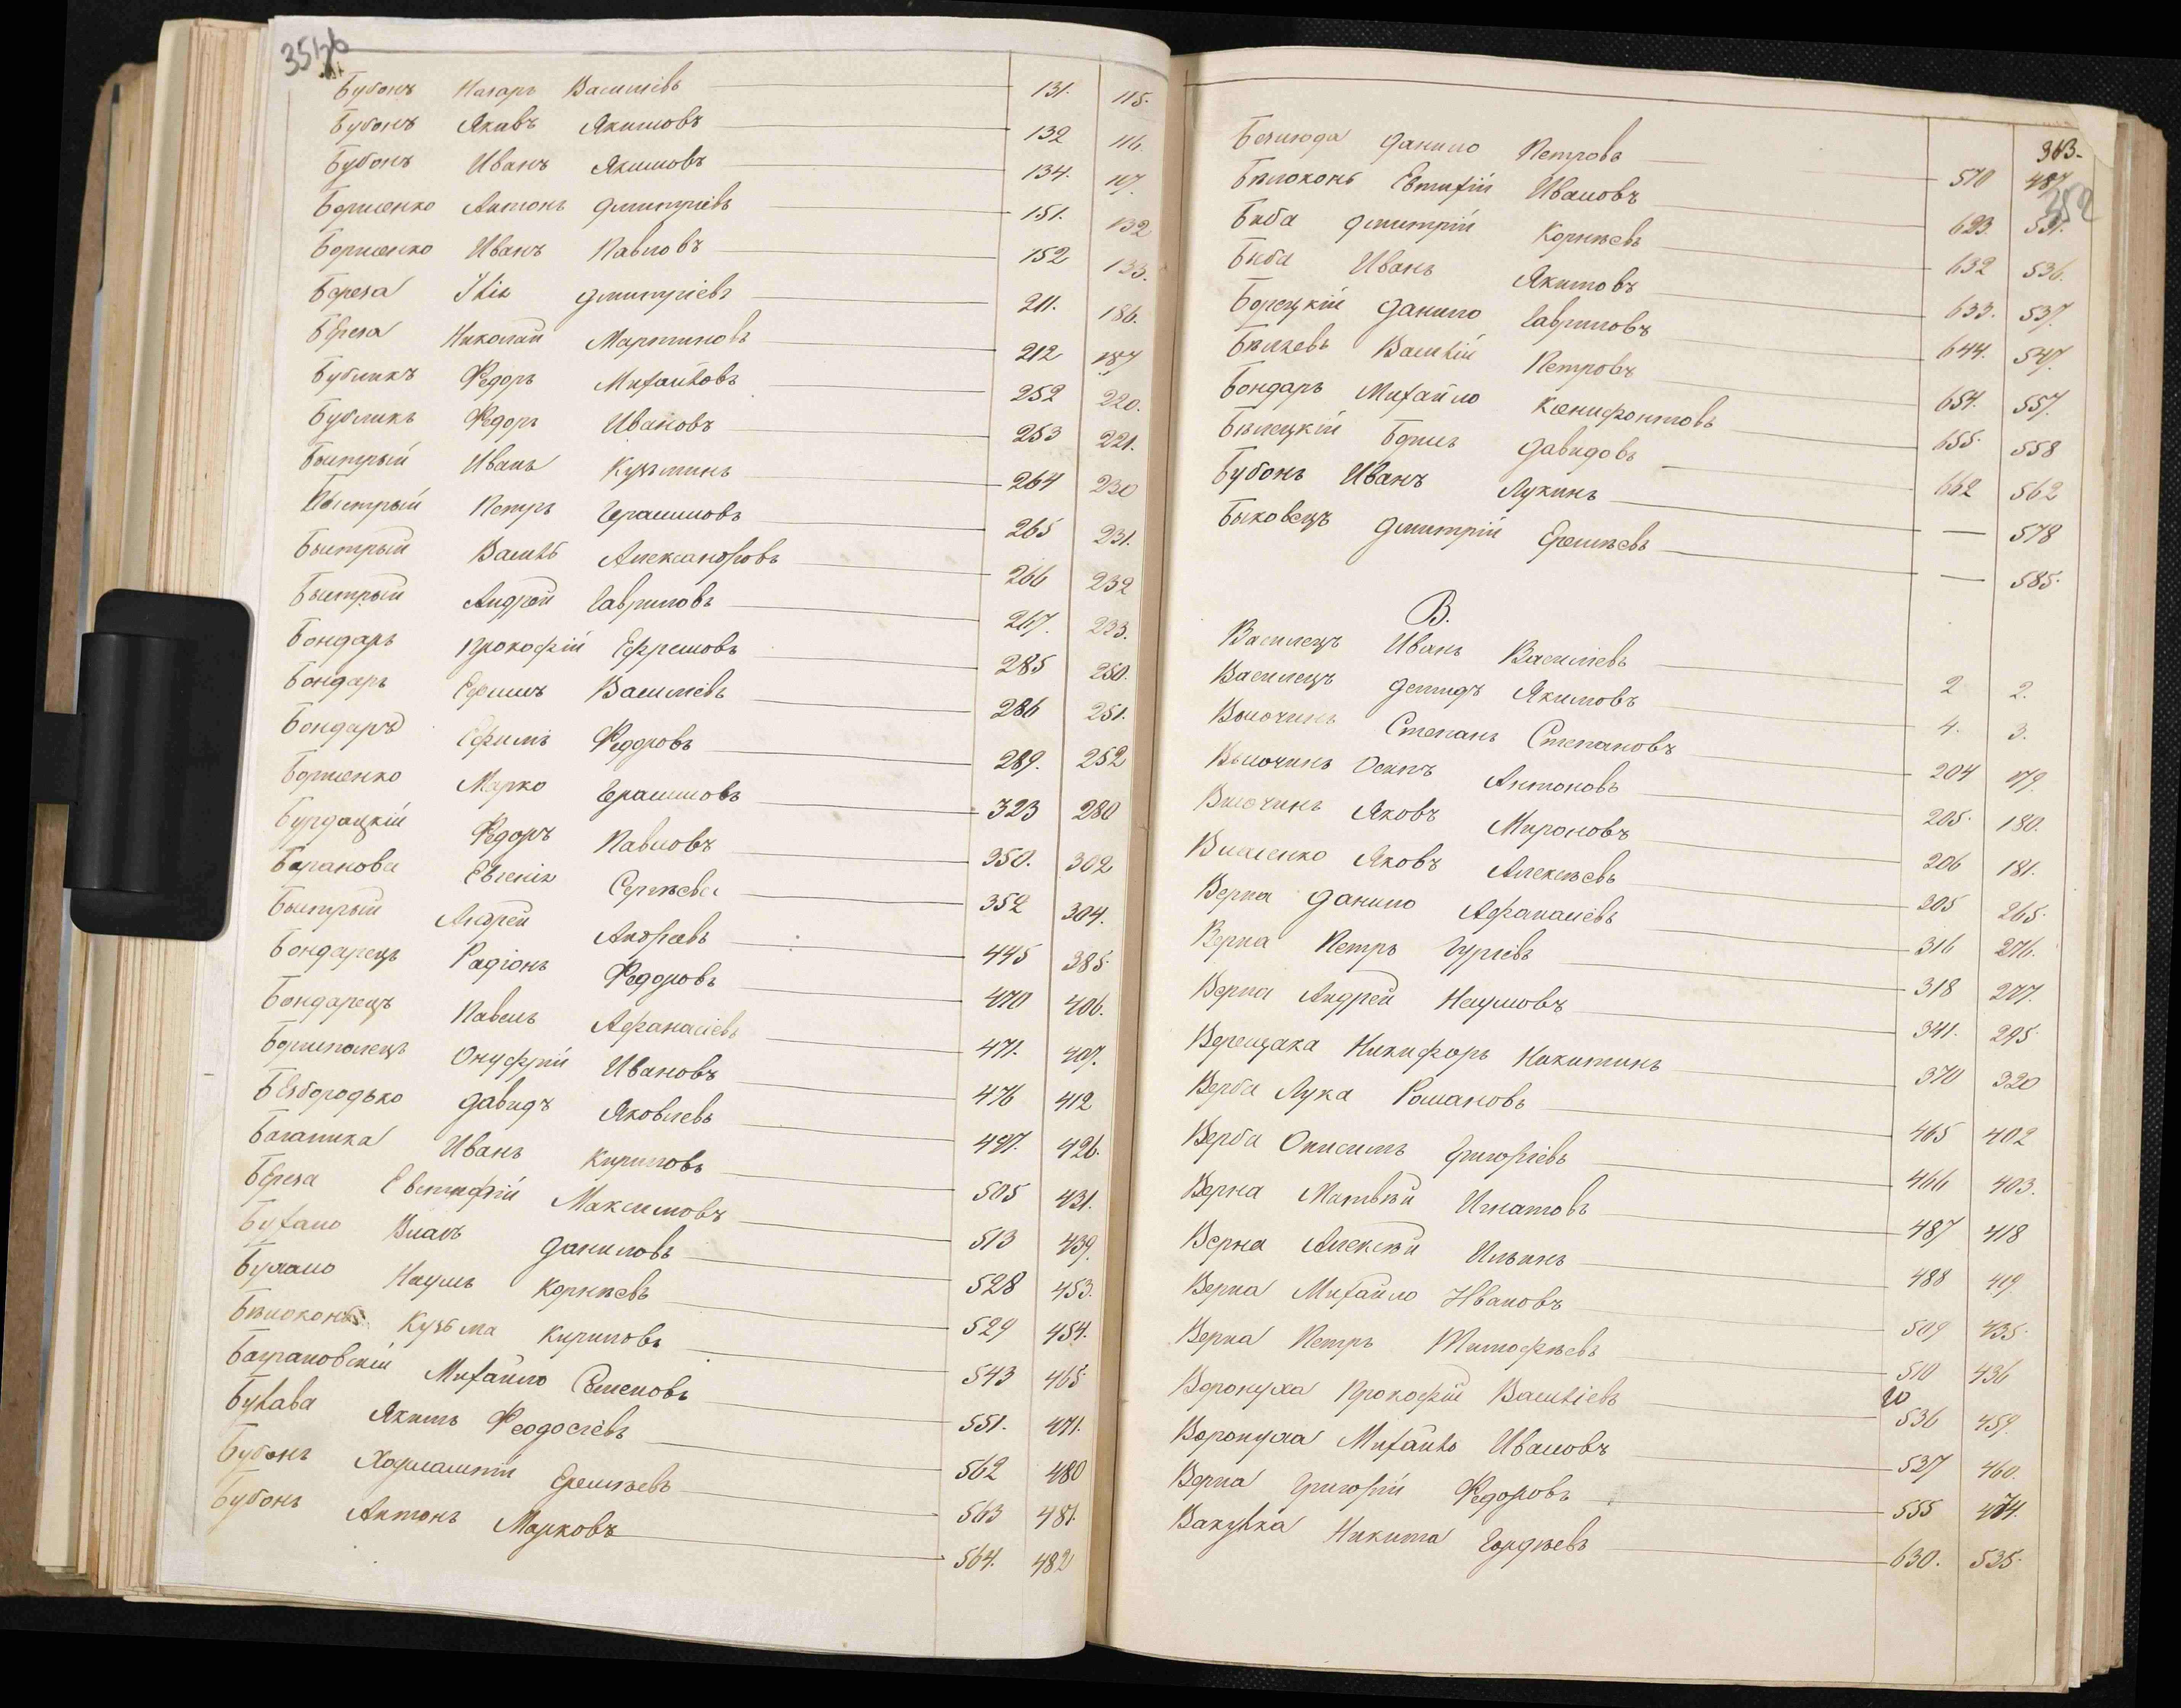 Бубонъ Назаръ Василіевъ 131. 115.
Бубонъ Яковъ Якимовъ 132 116.
Бубонъ Иванъ Якимовъ 134. 117.
Борисенко Антонъ Дмитріевъ 151. 132
Борисенко Иванъ Павловъ 152 133.
Береза Илія Дмитріевъ 211. 186.
Береза Николай Мартиновъ 212 187
Бубликъ Федоръ Михайловъ 252 220.
Бубликъ Федоръ Ивановъ 253 221.
Быстрый Иванъ Кузьминъ 264 230
Быстрый Петръ Герасимовъ 265 231.
Быстрый Василь Александровъ 266 232
Быстрый Андрей Гавриловъ 267. 233.
Бондарь Прокофій Ефремовъ 285 250.
Бондарь Ефимъ Василіевъ 286 251.
Бондарь Ефимъ Федоровъ 289. 252
Борисенко Марко Герасимовъ 323 280
Федоръ Павловъ 350. 302
Баранова Евгенія Сергѣева 352 304.
Быстрый Андрей Андреевъ 445 385.
Бондарецъ Радіонъ Федоровъ 470 406.
Бондарецъ Павелъ Афанасіевъ 471. 407.
Бориполецъ Онуфрій Ивановъ 476 412
Безбородько Давидъ Яковлевъ 497. 426.
Иванъ Кириловъ 505 431.
Береза Евстафій Максимовъ 513 439.
Бухало Власъ Даниловъ 528 453.
Бухало Наумъ Корнѣевъ 529 454.
Бѣлоконь Кузьма Кириловъ 543 465
Баграновскій Михайло Семеновъ 551. 471.
Булава Якимъ Феодосіевъ 562 480
Бубонъ Харлампій Еремѣевъ 563 481.
Бубонъ Антонъ Марковъ 564. 482
363.
352
Данило Петровъ 570 487
Бѣлоконь Евтифій Ивановъ 623. 531.
Биба Дмитрій Корнѣевъ 632 536.
Биба Иванъ Якимовъ 633. 537.
Борецкій Данило Гавриловъ 644. 547.
Василій Петровъ 654. 557.
Бондарь Михайло Ксенифонтовъ 655. 558
Бѣлецкій Борисъ Давидовъ 662 562
Бубонъ Иванъ Лукинъ — 578
Быковецъ Дмитрій Еремѣевъ — 585.
В.
Василецъ Иванъ Василіевъ 2 2.
Василецъ Демидъ Якимовъ 4. 3.
Высочинъ Степанъ Степановъ 204 179.
Высочинъ Осипъ Антоновъ 205. 180.
Высочинъ Яковъ Мироновъ 206 181.
Власенко Яковъ Алексѣевъ 305 265.
Верна Данило Афанасіевъ 316 276.
Верна Петръ Гуріевъ 318 277.
Верна Андрей Наумовъ 341. 295.
Верещака Никифоръ Никитинъ 370 320
Верба Лука Романовъ 465 402
Верба Онисимъ Григоріевъ 466 403.
Верна Матвѣй Игнатовъ 487 418
Верна Алексѣй Ильинъ 488 419.
Верна Михайло Ивановъ 509 435.
Верна Петръ Тимофѣевъ 510 436
Воронуха Прокофій Василіевъ 536 459.
Воронуха Михайло Ивановъ 537 460.
Верна Григорій Федоровъ 555 474.
Вакулка Никита Гордѣевъ 630. 535.